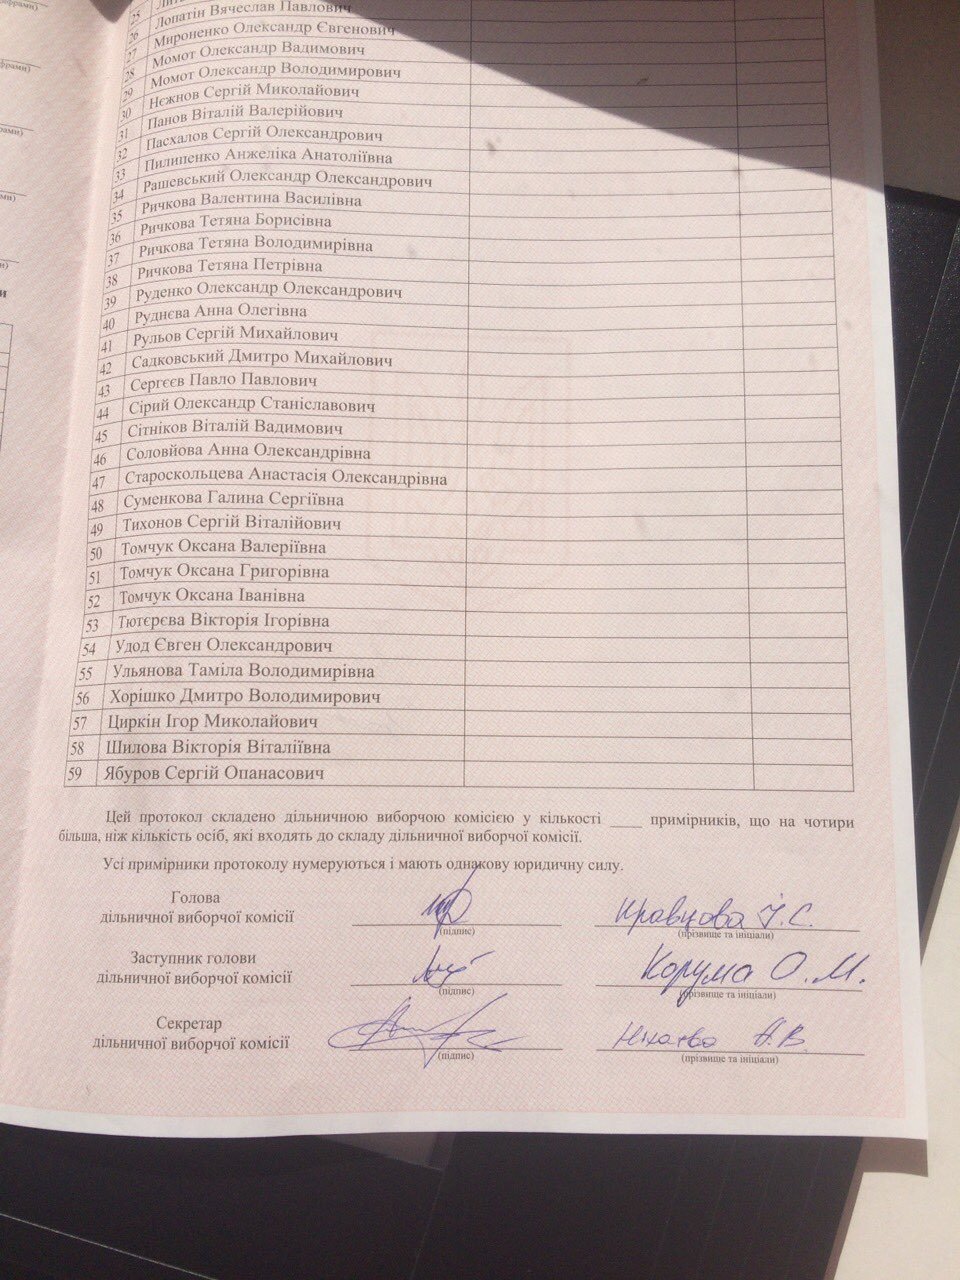 фрами)
25
26 Лопатін Вячеслав Павлович
27 Мироненко Олександр Євгенович
28 Момот Олександр Вадимович
29 Момот Олександр Володимирович
30 Нєжнов Сергій Миколайович
31 Панов Віталій Валерійович
32 Пасхалов Сергій Олександрович
33 Пилипенко Анжеліка Анатоліївна
34 Рашевський Олександр Олександрович
35 Ричкова Валентина Василівна
36 Ричкова Тетяна Борисівна
37 Ричкова Тетяна Володимирівна
38 Ричкова Тетяна Петрівна
39 Руденко Олександр Олександрович
40 Руднєва Анна Олегівна
41 Рульов Сергій Михайлович
42 Садковський Дмитро Михайлович
43 Сергєєв Павло Павлович
44 Сірий Олександр Станіславович
45 Сітніков Віталій Вадимович
46 Соловйова Анна Олександрівна
47 Староскольцева Анастасія Олександрівна
48 Суменкова Галина Сергіївна
49 Тихонов Сергій Віталійович
50 Томчук Оксана Валеріївна
51 Томчук Оксана Григорівна
52 Томчук Оксана Іванівна
53 Тютєрєва Вікторія Ігорівна
54 Удод Євген Олександрович
55 Ульянова Таміла Володимирівна
56 Хорішко Дмитро Володимирович
57 Циркін Ігор Миколайович
58 Шилова Вікторія Віталіївна
59 Ябуров Сергій Опанасович
Цей протокол складено дільничною виборчою комісією у кількості ____ примірників, що на чотири
більша, ніж кількість осіб, які входять до складу дільничної виборчої комісії.
Усі примірники протоколу нумеруються і мають однакову юридичну силу.
Голова
дільничної виборчої комісії Кравцова І.С.
(підпис) (прізвище та ініціали)
Заступник голови
дільничної виборчої комісії Корума О.М.
(підпис) (прізвище та ініціали)
Секретар
дільничної виборчої комісії А.В.
(підпис) (прізвище та ініціали)